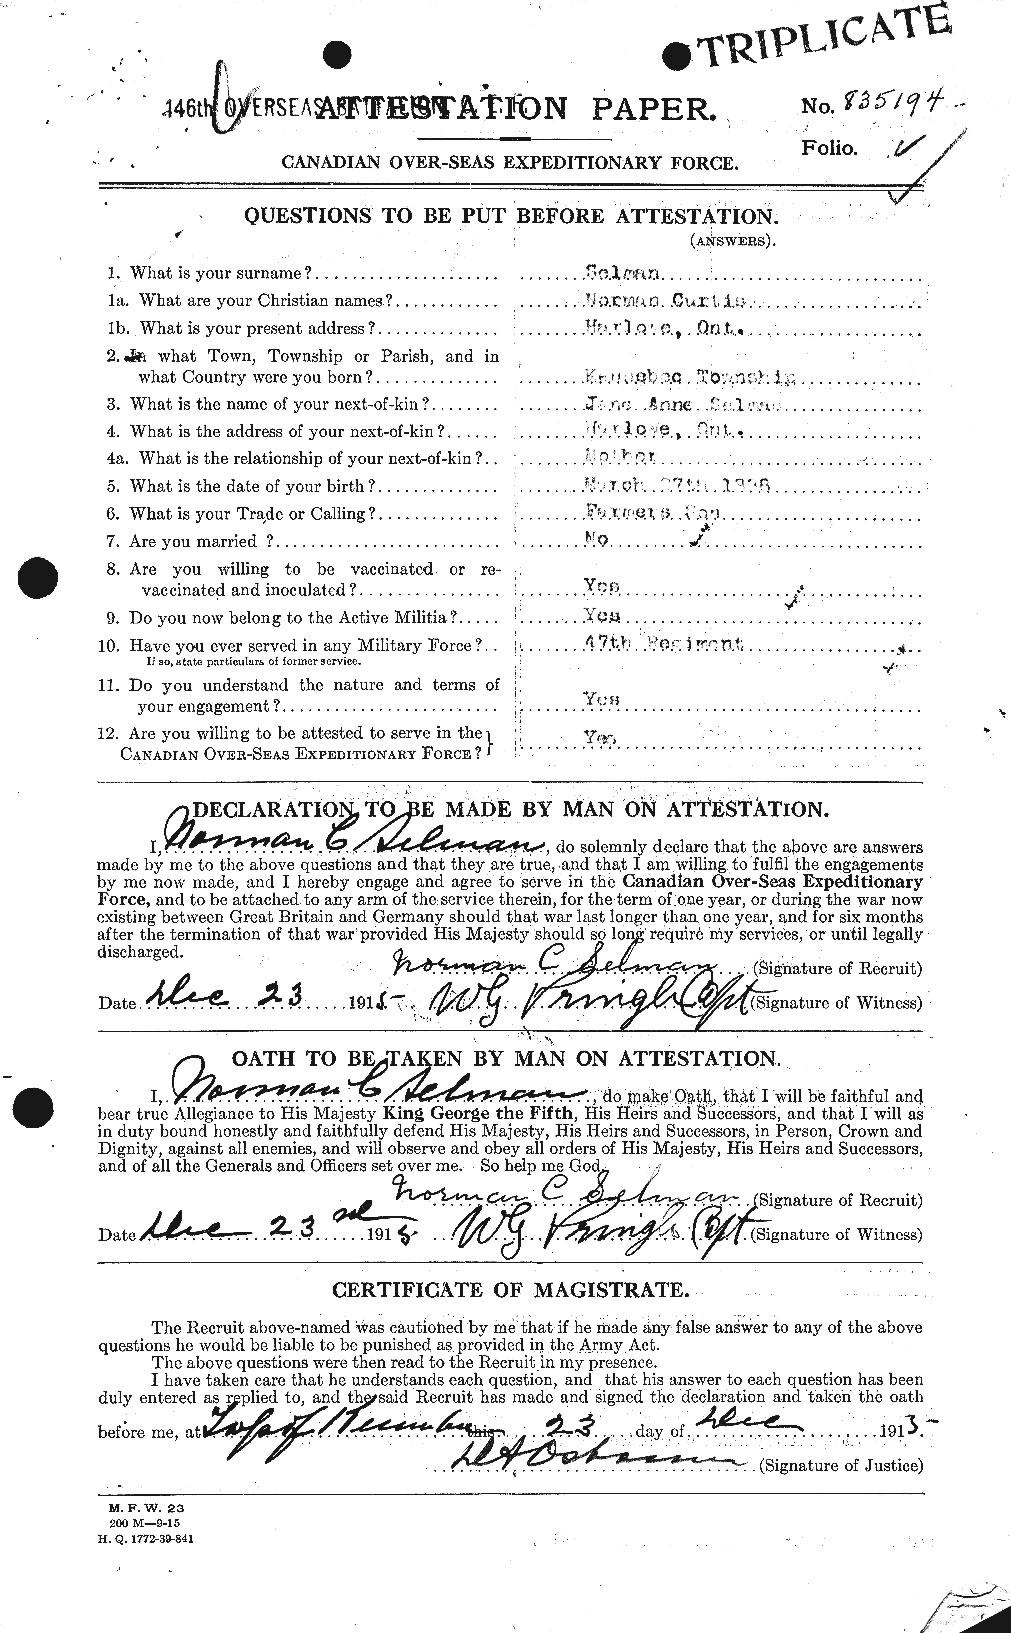 TRIPLICATE
146th OVERSEAS BATTALION, C.E.F.
ATTESTATION PAPER.
No. 835194
Folio.
CANADIAN OVER-SEAS EXPEDITIONARY FORCE.
QUESTIONS TO BE PUT BEFORE ATTESTATION.
(ANSWERS).
1. What is your surname? Selman
1a. What are your Christian names? Norman Curtis
1b. What is your present address? Harlowe, Ont.
2. In what Town, Township or Parish, and in
what Country were you born? Township
3. What is the name of your next-of-kin? Jane Anne Selman
4. What is the address of your next-of-kin? Harlowe, Ont.
4a. What is the relationship of your next-of-kin? Mother
5. What is the date of your birth? March 27th
6. What is your Trade or Calling? Farmers Son
7. Are you married? No
8. Are you willing to be vaccinated or re-
vaccinated and inoculated? Yes
9. Do you now belong to the Active Militia? Yes
10. Have you ever served in any Military Force? 47th Regiment
If so, state particulars of former service.
11. Do you understand the nature and terms of
your engagement? Yes
12. Are you willing to be attested to serve in the
CANADIAN OVER-SEAS EXPEDITIONARY FORCE? Yes
DECLARATION TO BE MADE BY MAN ON ATTESTATION.
I, Norman C Selman, do solemnly declare that the above are answers
made by me to the above questions and that they are true, and that I am willing to fulfil the engagements
by me now made, and I hereby engage and agree to serve in the Canadian Over-Seas Expeditionary
Force, and to be attached to any arm of the service therein, for the term of one year, or during the war now
existing between Great Britain and Germany should that war last longer than one year, and for six months
after the termination of that war provided His Majesty should so long require my services, or until legally
discharged.
Norman C Selman (Signature of Recruit)
Date Dec 23 1915 WG Pringle Capt (Signature of Witness)
OATH TO BE TAKEN BY MAN ON ATTESTATION.
I, Norman C Selman, do make Oath, that I will be faithful and
bear true Allegiance to His Majesty King George the Fifth, His Heirs and Successors, and that I will as
in duty bound honestly and faithfully defend His Majesty, His Heirs and Successors, in Person, Crown and
Dignity, against all enemies, and will observe and obey all orders of His Majesty, His Heirs and Successors,
and of all the Generals and Officers set over me. So help me God.
Norman C Selman (Signature of Recruit)
Date Dec 23rd 1915 WG Pringle Capt (Signature of Witness)
CERTIFICATE OF MAGISTRATE.
The Recruit above-named was cautioned by me that if he made any false answer to any of the above
questions he would be liable to be punished as provided in the Army Act.
The above questions were then read to the Recruit in my presence.
I have taken care that he understands each question, and that his answer to each question has been
duly entered as replied to, and the said Recruit has made and signed the declaration and taken the oath
before me, at this 23 day of Dec 1915
(Signature of Justice)
M. F. W. 23
200 M—9-15
H. Q. 1772-39-841